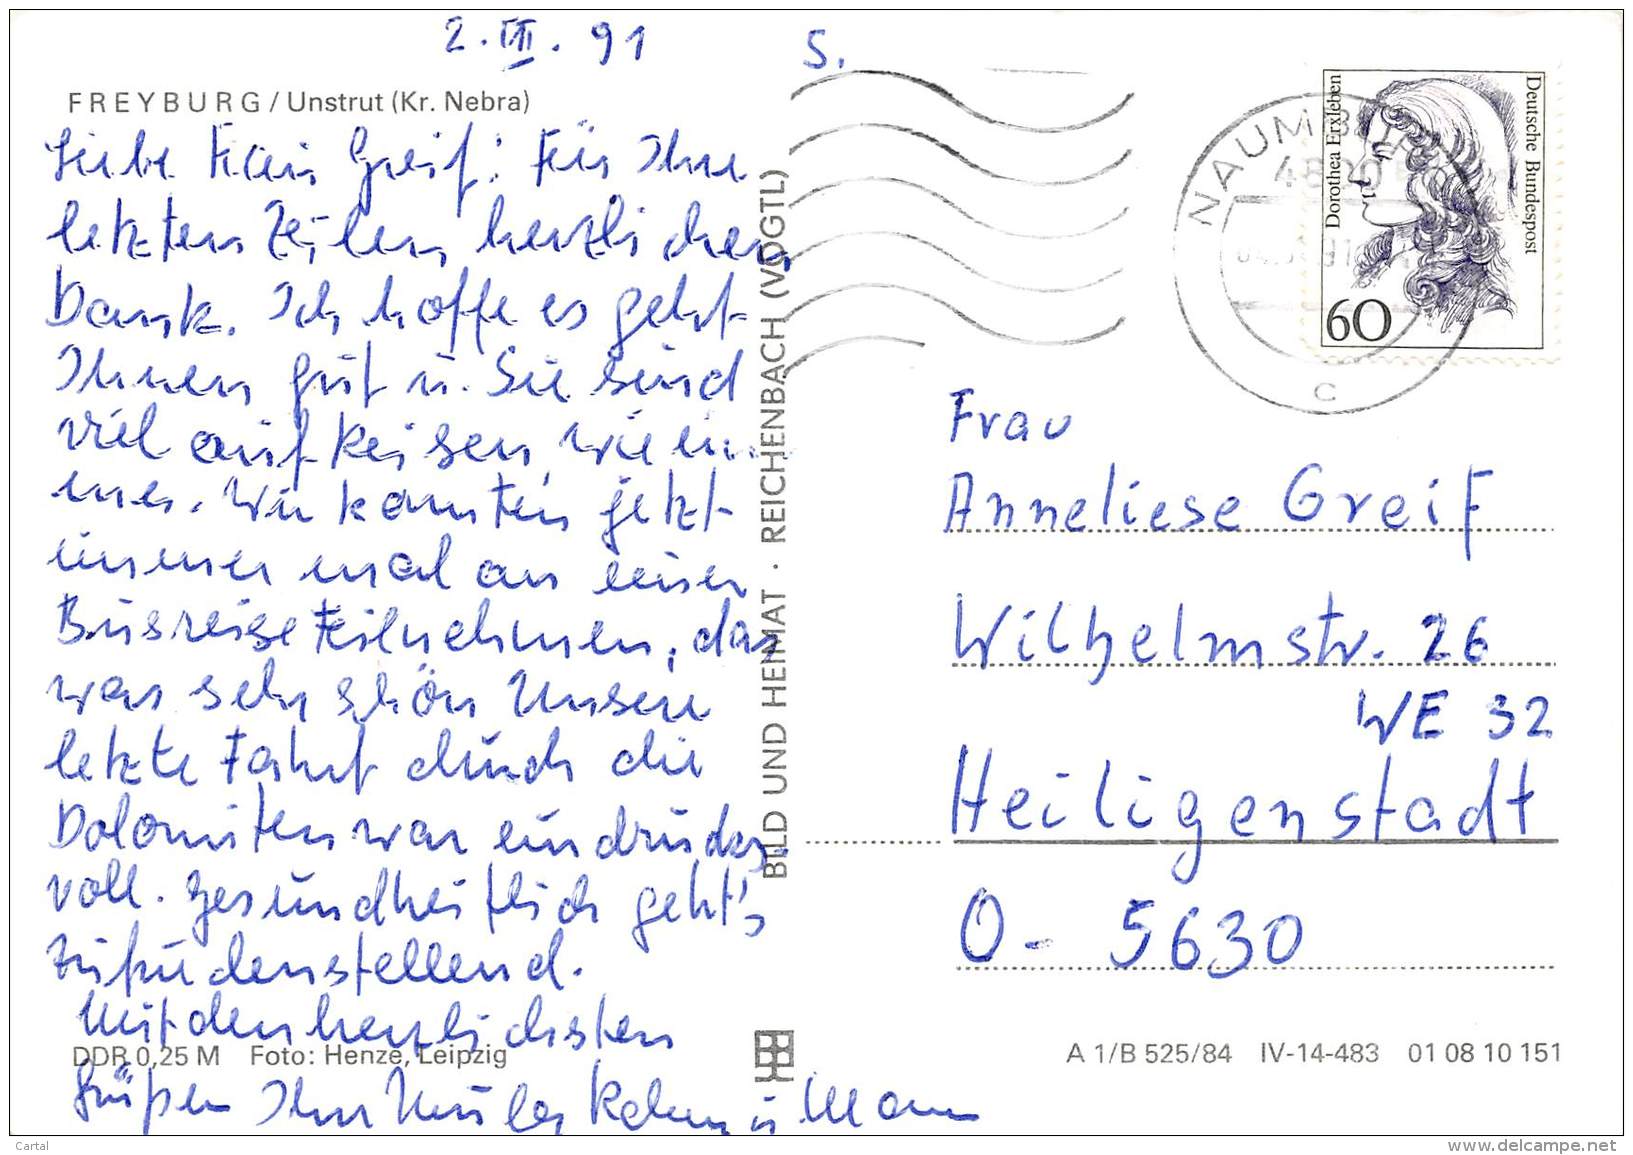 2. III. 91
S.
FREYBURG / Unstrut (Kr. Nebra)
Liebe Frau Greif! Für Ihre
letzten Zeilen herzlichen
Dank. Ich hoffe es geht
Ihnen gut u. Sie sind
viel auf Reisen, wie im
mer. Wir konnten jetzt
immer mal an einer
Busreise teilnehmen, das
war sehr schön Unsere
letzte Fahrt durch die
Dolomiten war eindrucks
voll. Gesundheitlich geht's
zufriedenstellend.
Mit den herzlichsten
Grüßen Ihre u. Mann
DDR 0,25 M Foto: Henze, Leipzig
BILD UND HEIMAT · REICHENBACH (VOGTL)
NAUMBURG
4800
c
Deutsche Bundespost
Dorothea Erxleben
60
Frau
Anneliese Greif
Wilhelmstr. 26
WE 32
Heiligenstadt
O - 5630
A 1/B 525/84 IV-14-483 01 08 10 151
Cartal
www.delcampe.net